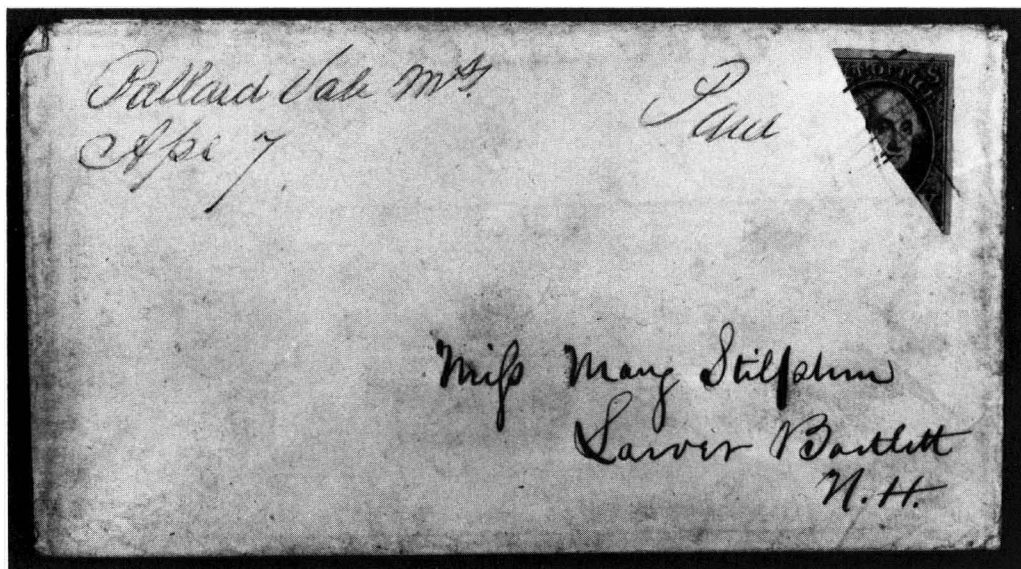 Ballard Vale Ms.
Apl 7
Paid
POST OFFICE
Miss Mary Stilphen
Lower Bartlett
N. H.